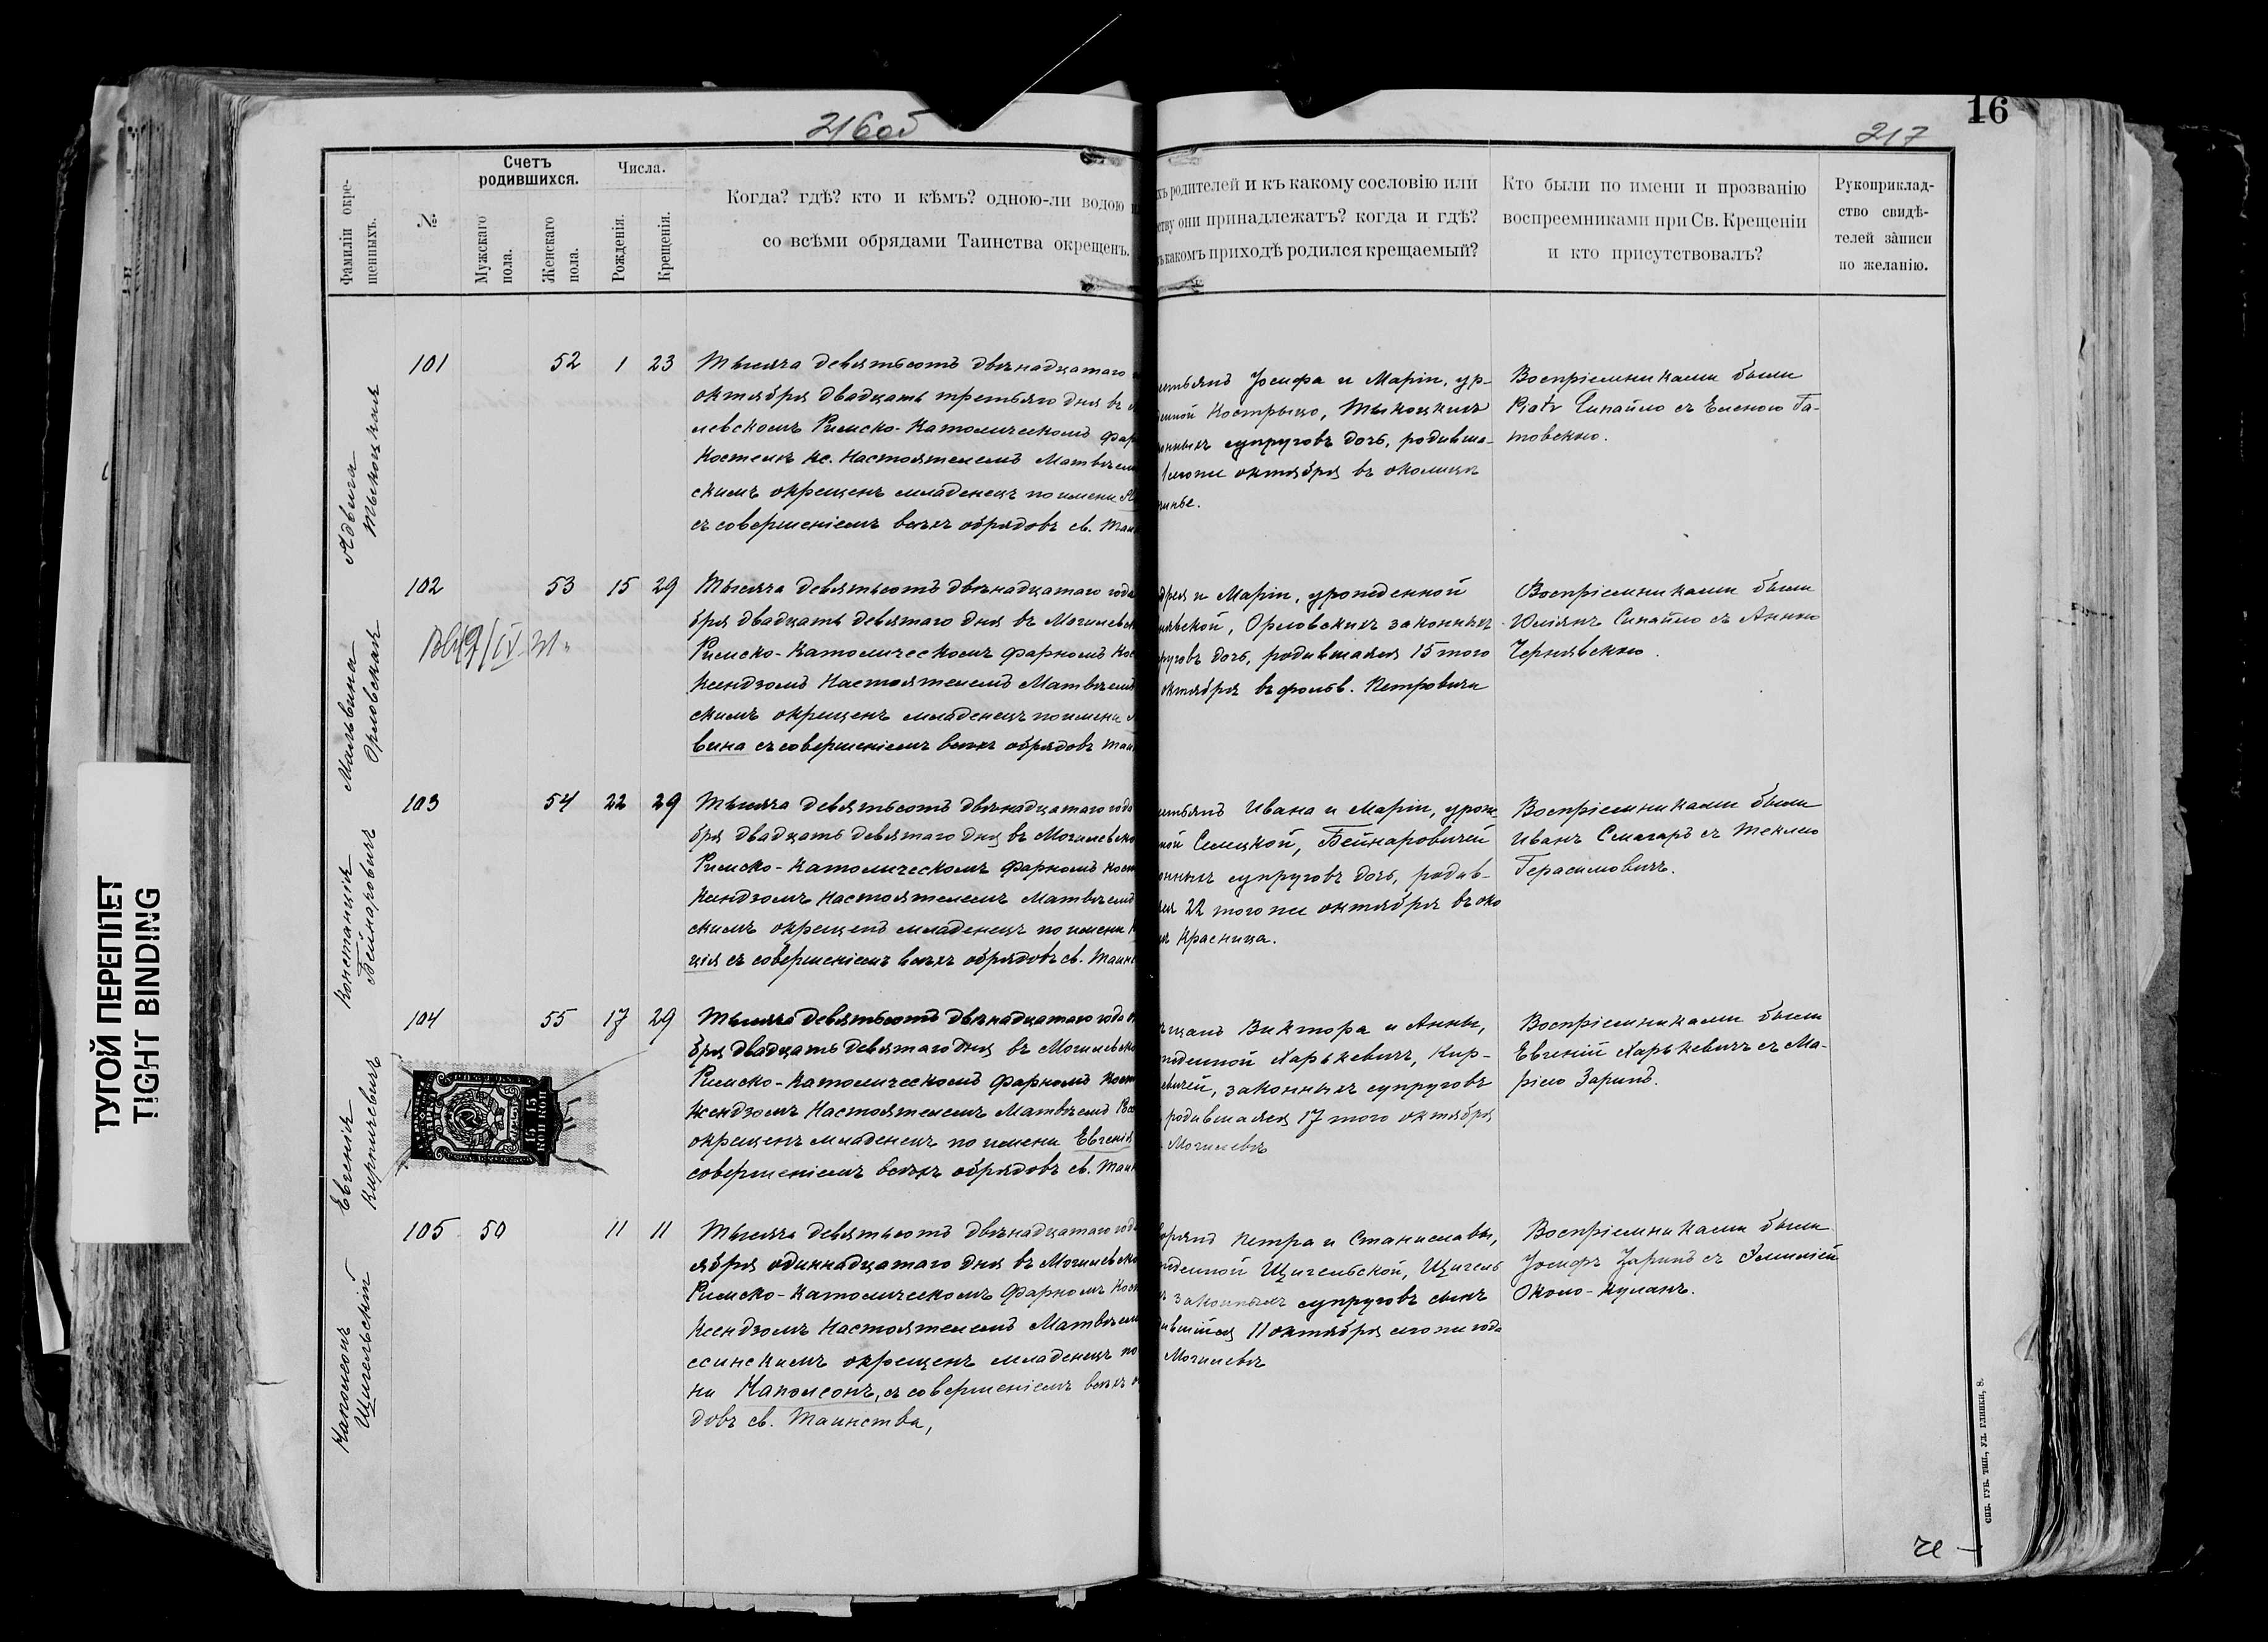 216 об
16
217
ТУГОЙ ПЕРЕПЛЕТ
TIGHT BINDING
Фамиліи окре-
щенныхъ.
№
Счетъ
родившихся.
Мужскаго
пола.
Женскаго
пола.
Числа.
Рожденія.
Крещенія.
Когда? гдѣ? кто и кѣмъ? одною-ли водою и
со всѣми обрядами Таинства окрещенъ.
хъ родителей и къ какому сословію или
ству они принадлежатъ? когда и гдѣ?
ъ какомъ приходѣ родился крещаемый?
Кто были по имени и прозванію
воспреемниками при Св. Крещеніи
и кто присутствовалъ?
Рукоприклад-
ство свидѣ-
телей записи
по желанію.
Ядвига
Тыкоцкая
101 52 1 23
Тысяча девятьсотъ двѣнадцатаго
октября двадцать третьяго дня въ
левскомъ Римско-Католическомъ фар
Костелѣ Кс. Настоятелемъ Матвѣемъ
скимъ окрещенъ младенецъ по имени
съ совершеніемъ всѣхъ обрядовъ св. Таин
естьянъ Іосифа и Маріи, ур-
денной Кострыцо, Тыкоцкихъ
конныхъ супруговъ дочь, родивша-
октября въ околицѣ
Воспріемниками были
Piotr Синайло съ Еленою Га-
товскою.
Мальвина
Орловская
102 53 15 29
Тысяча девятьсотъ двѣнадцатаго года
бря двадцать девятаго дня въ Могилевск
Римско-Католическомъ фарномъ Кос
Ксендзомъ Настоятелемъ Матвѣемъ
скимъ окрещенъ младенецъ по имени
вина съ совершеніемъ всѣхъ обрядовъ Таин
дрея и Маріи, урожденной
нявской, Орловскихъ законныхъ
пруговъ дочь, родившаяся 15 того
октября въ фольв. Петровичи
Воспріемниками были
Юліянъ Синайло съ Анною
Чернявскою.
Констанція
Бейнаровичъ
103 54 22 29
Тысяча девятьсотъ двѣнадцатаго года
бря двадцать девятаго дня въ Могилевско
Римско-Католическомъ фарномъ Кост
Ксендзомъ Настоятелемъ Матвѣемъ
скимъ окрещенъ младенецъ по имени К
ція съ совершеніемъ всѣхъ обрядовъ св. Таинс
естьянъ Ивана и Маріи, урож
ной Селицкой, Бейнаровичей
онныхъ супруговъ дочь, родив-
яся 22 того же октября въ око
цѣ Красница.
Воспріемниками были
Иванъ Смагаръ съ Теклею
Герасимовичъ.
Евгенія
Кирпичевичъ
104 55 17 29
15 15
КОП КОП
Тысяча девятьсотъ двѣнадцатаго года о
бря двадцать девятаго дня въ Могилевско
Римско-Католическомъ фарномъ Кост
Ксендзомъ Настоятелемъ Матвѣемъ
окрещенъ младенецъ по имени Евгенія
совершеніемъ всѣхъ обрядовъ св. Таин
ѣщанъ Виктора и Анны,
жденной Харькевичъ, Кир-
евичей, законныхъ супруговъ
родившаяся 17 того октября
Могилевѣ
Воспріемниками были
Евгеній Харькевичъ съ Ма-
ріею Заринъ.
Наполеонъ
Щигельскій
105 50 11 11
Тысяча девятьсотъ двѣнадцатаго года
ября одиннадцатаго дня въ Могилевско
Римско-Католическомъ фарномъ Кост
Ксендзомъ Настоятелемъ Матвѣемъ
ссинскимъ окрещенъ младенецъ по
ни Наполеонъ, съ совершеніемъ всѣхъ о
довъ св. Таинства,
ворянъ Петра и Станиславы,
жденной Щигельской, Щигель
законныхъ супруговъ сынъ
дившійся 11 октября сего же года
Могилевѣ
Воспріемниками были
Іосифъ Заринъ съ Эмиліей
Около-Кулакъ.
СПБ. ГУБ. ТИП., УЛ. ГЛИНКИ, 8.